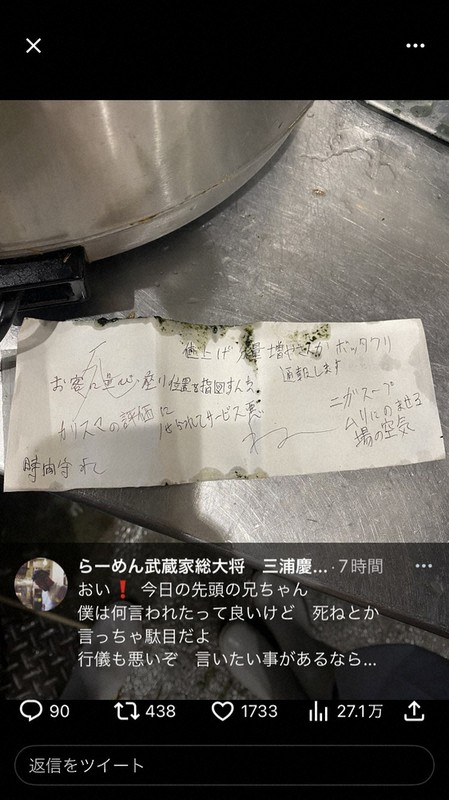 値上げ 分量増やすか ボッタクリ
通報します
お客に並び・座り位置を指図すんな
カリスマの評価に
サービス悪
時間守れし
ニガスープ
ムリにのませる
場の空気
らーめん武蔵家総大将 三浦慶... · 7時間
おい❗ 今日の先頭の兄ちゃん
僕は何言われたって良いけど 死ねとか
言っちゃ駄目だよ
行儀も悪いぞ 言いたい事があるなら...
90 438 1733 27.1万
返信をツイート